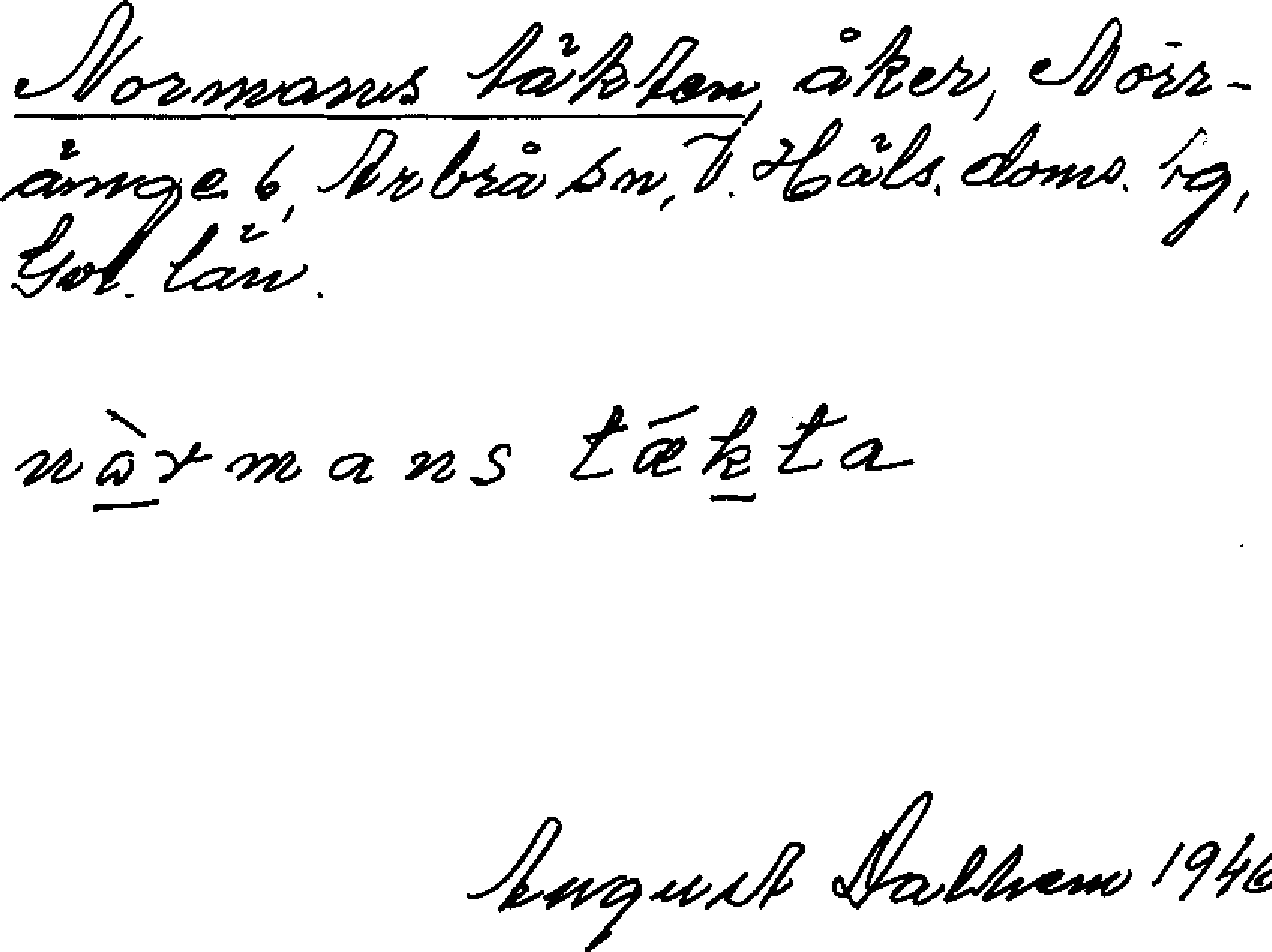 Normans täkten, åker, Norr-
änge 6, Arbrå sn, V. Häls. doms. sg,
Gvl. län.
nòrmans tǽkta
August Dalhem 1946